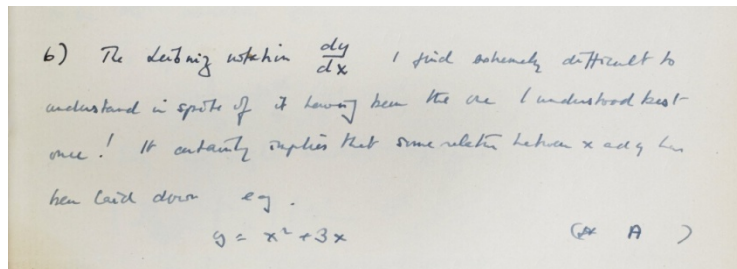 6) The Leibniz notation dy/dx I find extremely difficult to
understand in spite of it having been the one I understood best
once! It certainly implies that some relation between x and y has
been laid down eg.
y = x² + 3x (A )